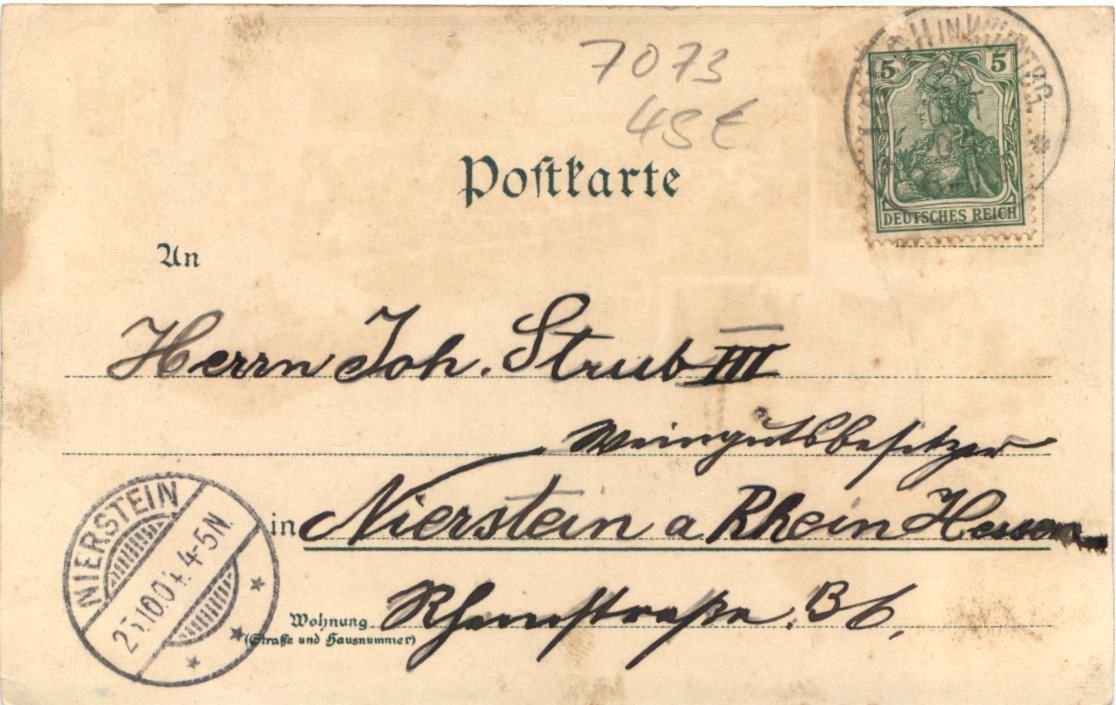 7073
45€
IN
5 5
DEUTSCHES REICH
Postkarte
An
Herrn Joh. Strub III
Weingutsbesitzer
in Nierstein a Rhein Hessen
Wohnung Rheinstraße.
(Straße und Hausnummer)
NIERSTEIN
4-5N.